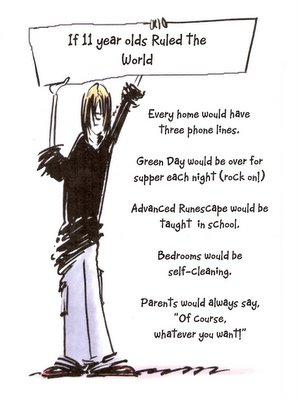 If 11 year olds Ruled the
World
Every home would have
three phone lines.
Green Day would be over for
supper each night (rock on!)
Advanced Runescape would be
taught in school.
Bedrooms would be
self-cleaning.
Parents would always say,
"Of Course,
whatever you want!"